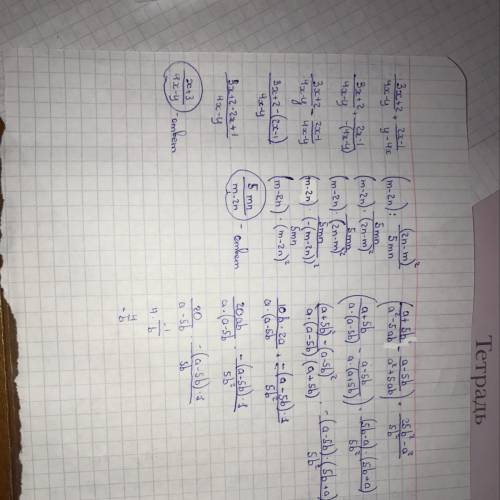 Тетрадь
(3x+2)/(4x-y) + (2x-1)/(y-4x)
(3x+2)/(4x-y) + (2x-1)/(-(4x-y))
(3x+2)/(4x-y) - (2x-1)/(4x-y)
(3x+2-(2x-1))/(4x-y)
(3x+2-2x+1)/(4x-y)
(x+3)/(4x-y) - ответ
(m-2n) : (2n-m)²/5mn
(m-2n) · 5mn/(2n-m)²
(m-2n) · 5mn/(2n-m)²
(m-2n) · 5mn/(-(m-2n))²
(m-2n) · 5mn/(m-2n)²
5mn/(m-2n) - ответ
((a+5b)/(a²-5ab) - (a-5b)/(a²+5ab)) · (25b²-a²)/5b²
((a+5b)/(a·(a-5b)) - (a-5b)/(a·(a+5b))) · (5b-a)·(5b+a)/5b²
((a+5b)²-(a-5b)²)/(a·(a-5b)·(a+5b)) · -(a-5b)·(5b+a)/5b²
(10b·2a)/(a·(a-5b)) · -(a-5b)·1/5b²
20ab/(a·(a-5b)) · -(a-5b)·1/5b²
20/(a-5b) · -(a-5b)·1/5b
4 · -1/b
-4/b